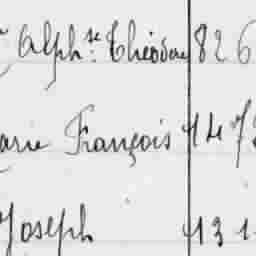 Alph.se Théodore 82 6
arie François 14 7
Joseph 13 1